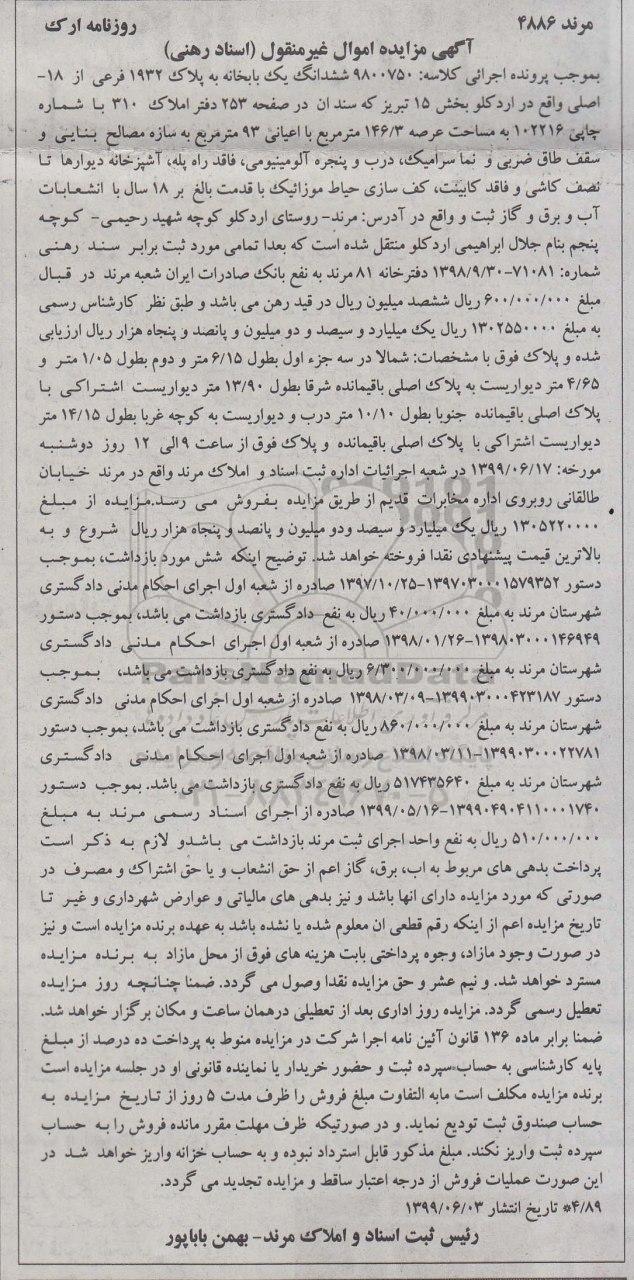 مرند ۴۸۸۶
روزنامه ارک
آگهی مزایده اموال غیرمنقول (اسناد رهنی)
بموجب پرونده اجرائی کلاسه: ۹۸۰۰۷۵۰ ششدانگ یک بابخانه به پلاک ۱۹۳۲ فرعی از ۱۸-
اصلی واقع در اردکلو بخش ۱۵ تبریز که سند ان در صفحه ۲۵۳ دفتر املاک ۳۱۰ با شماره
چاپی ۱۰۲۲۱۶ به مساحت عرصه ۱۴۶/۳ مترمربع با اعیانی ۹۳ مترمربع به سازه مصالح بنایی و
سقف طاق ضربی و نما سرامیک، درب و پنجره آلومینیومی، فاقد راه پله، آشپزخانه دیوارها تا
نصف کاشی و فاقد کابینت، کف سازی حیاط موزائیک با قدمت بالغ بر ۱۸ سال با انشعابات
آب و برق و گاز ثبت و واقع در آدرس: مرند- روستای اردکلو کوچه شهید رحیمی- کوچه
پنجم بنام جلال ابراهیمی اردکلو منتقل شده است که بعدا تمامی مورد ثبت برابر سند رهنی
شماره: ۷۱۰۸۱-۱۳۹۸/۹/۳۰ دفترخانه ۸۱ مرند به نفع بانک صادرات ایران شعبه مرند در قبال
مبلغ ۶۰۰/۰۰۰/۰۰۰ ریال ششصد میلیون ریال در قید رهن می باشد و طبق نظر کارشناس رسمی
به مبلغ ۱۳۰۲۵۵۰۰۰۰ ریال یک میلیارد و سیصد و دو میلیون و پانصد و پنجاه هزار ریال ارزیابی
شده و پلاک فوق با مشخصات: شمالا در سه جزء اول بطول ۶/۱۵ متر و دوم بطول ۱/۰۵ متر و
۴/۶۵ متر دیواریست به پلاک اصلی باقیمانده شرقا بطول ۱۳/۹۰ متر دیواریست اشتراکی با
پلاک اصلی باقیمانده جنوبا بطول ۱۰/۱۰ متر درب و دیواریست به کوچه غربا بطول ۱۴/۱۵ متر
دیواریست اشتراکی با پلاک اصلی باقیمانده و پلاک فوق از ساعت ۹ الی ۱۲ روز دوشنبه
مورخه: ۱۳۹۹/۰۶/۱۷ در شعبه اجرائیات اداره ثبت اسناد و املاک مرند واقع در مرند خیابان
طالقانی روبروی اداره مخابرات قدیم از طریق مزایده بفروش می رسد.مزایده از مبلغ
۱۳۰۵۲۲۰۰۰۰ ریال یک میلیارد و سیصد ودو میلیون و پانصد و پنجاه هزار ریال شروع و به
بالاترین قیمت پیشنهادی نقدا فروخته خواهد شد. توضیح اینکه شش مورد بازداشت، بموجب
دستور ۱۳۹۷۰۳۰۰۰۱۵۷۹۳۵۲-۱۳۹۷/۱۰/۲۵ صادره از شعبه اول اجرای احکام مدنی دادگستری
شهرستان مرند به مبلغ ۴۰/۰۰۰/۰۰۰ ریال به نفع دادگستری بازداشت می باشد، بموجب دستور
۱۳۹۸۰۳۰۰۰۱۴۶۹۴۹-۱۳۹۸/۰۱/۲۶ صادره از شعبه اول اجرای احکام مدنی دادگستری
شهرستان مرند به مبلغ ۶/۳۰۰/۰۰۰/۰۰۰ ریال به نفع دادگستری بازداشت می باشد، بموجب
دستور ۱۳۹۹۰۳۰۰۰۴۲۳۱۸۷-۱۳۹۸/۰۳/۰۹ صادره از شعبه اول اجرای احکام مدنی دادگستری
شهرستان مرند به مبلغ ۸۶۰/۰۰۰/۰۰۰ ریال به نفع دادگستری بازداشت می باشد، بموجب دستور
۱۳۹۹۰۳۰۰۰۲۲۷۸۱-۱۳۹۸/۰۳/۱۱ صادره از شعبه اول اجرای احکام مدنی دادگستری
شهرستان مرند به مبلغ ۵۱۷۴۳۵۶۴۰ ریال به نفع دادگستری بازداشت می باشد. بموجب دستور
۱۳۹۹۰۴۹۰۴۱۱۰۰۰۱۷۴۰-۱۳۹۹/۰۵/۱۶ صادره از اجرای اسناد رسمی مرند به مبلغ
۵۱۰/۰۰۰/۰۰۰ ریال به نفع واحد اجرای ثبت مرند بازداشت می باشدو لازم به ذکر است
پرداخت بدهی های مربوط به اب، برق، گاز اعم از حق انشعاب و یا حق اشتراک و مصرف در
صورتی که مورد مزایده دارای انها باشد و نیز بدهی های مالیاتی و عوارض شهرداری و غیر تا
تاریخ مزایده اعم از اینکه رقم قطعی ان معلوم شده یا نشده باشد به عهده برنده مزایده است و نیز
در صورت وجود مازاد، وجوه پرداختی بابت هزینه های فوق از محل مازاد به برنده مزایده
مسترد خواهد شد. و نیم عشر و حق مزایده نقدا وصول می گردد. ضمنا چنانچه روز مزایده
تعطیل رسمی گردد. مزایده روز اداری بعد از تعطیلی درهمان ساعت و مکان برگزار خواهد شد.
ضمنا برابر ماده ۱۳۶ قانون آئین نامه اجرا شرکت در مزایده منوط به پرداخت ده درصد از مبلغ
پایه کارشناسی به حساب سپرده ثبت و حضور خریدار یا نماینده قانونی او در جلسه مزایده است
برنده مزایده مکلف است مابه التفاوت مبلغ فروش را ظرف مدت ۵ روز از تاریخ مزایده به
حساب صندوق ثبت تودیع نماید. و در صورتیکه ظرف مهلت مقرر مانده فروش را به حساب
سپرده ثبت واریز نکند. مبلغ مذکور قابل استرداد نبوده و به حساب خزانه واریز خواهد شد در
این صورت عملیات فروش از درجه اعتبار ساقط و مزایده تجدید می گردد.
۴/۸۹* تاریخ انتشار ۱۳۹۹/۰۶/۰۳
رئیس ثبت اسناد و املاک مرند- بهمن باباپور